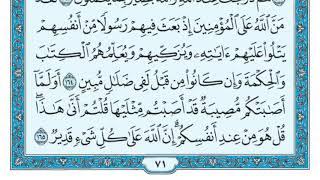 هُمْ دَرَجَٰتٌ عِندَ ٱللَّهِ وَٱللَّهُ بَصِيرٌۢ بِمَا يَعْمَلُونَ
مَنَّ ٱللَّهُ عَلَى ٱلْمُؤْمِنِينَ إِذْ بَعَثَ فِيهِمْ رَسُولًا مِّنْ أَنفُسِهِمْ
يَتْلُوا۟ عَلَيْهِمْ ءَايَٰتِهِۦ وَيُزَكِّيهِمْ وَيُعَلِّمُهُمُ ٱلْكِتَٰبَ
وَٱلْحِكْمَةَ وَإِن كَانُوا۟ مِن قَبْلُ لَفِى ضَلَٰلٍ مُّبِينٍ ١٦٤ أَوَلَمَّآ
أَصَٰبَتْكُم مُّصِيبَةٌ قَدْ أَصَبْتُم مِّثْلَيْهَا قُلْتُمْ أَنَّىٰ هَٰذَا ۖ
قُلْ هُوَ مِنْ عِندِ أَنفُسِكُمْ ۗ إِنَّ ٱللَّهَ عَلَىٰ كُلِّ شَىْءٍ قَدِيرٌ ١٦٥
٧١